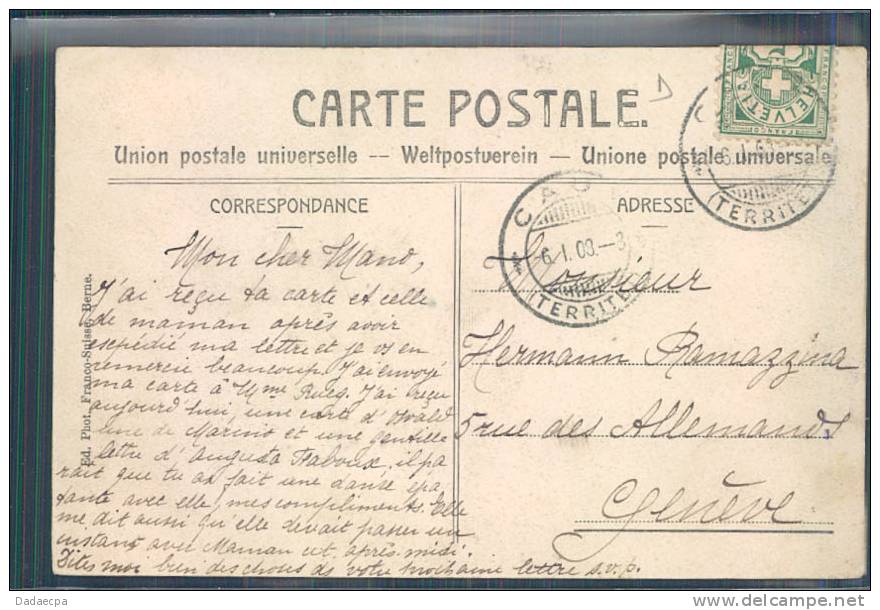 CARTE POSTALE.
Union postale universelle -- Weltpostverein — Unione postale universale
CORRESPONDANCE
ADRESSE
HELVETIA
FRANCO
CAU
6.I.08.-8
(TERRITE
6.I.08
(TERRITE
Mon cher Mano,
J'ai reçu ta carte et celle
de maman après avoir
expédié ma lettre et je vs en
remercie beaucoup. J'ai envoyé
ma carte à Mme Rueg. J'ai reçu
aujourd'hui, une carte d'Oswald
une de Marino et une gentille
lettre d'Augusta Traboux. il pa
rait que tu as fait une danse épa
tante avec elle, mes compliments. Elle
me dit aussi qu'elle devait passer un
instant avec Maman cet après-midi.
Dites moi bien des choses ds votre prochaine lettre s.v.p.
Monsieur
Hermann Ramazzina
5 rue des Allemands
Genève
Ed. Phot. Franco-Suisse, Berne.
Dadaecpa
http://www.delcampe.net